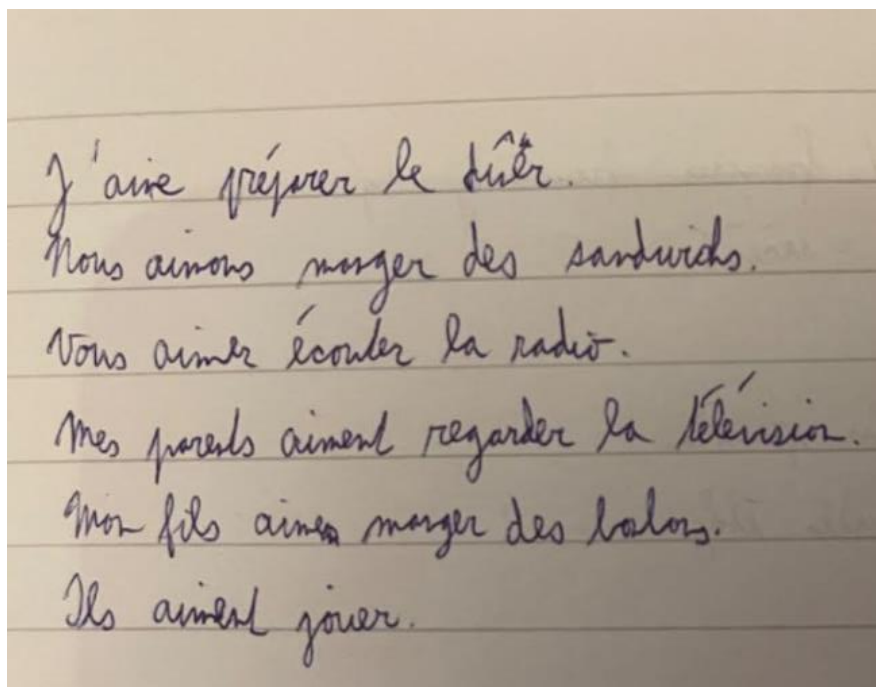 J'aime préparer le dîner.
Nous aimons manger des sandwichs.
Vous aimer écouter la radio.
Mes parents aiment regarder la télévision.
Mon fils aimes manger des
Ils aiment jouer.